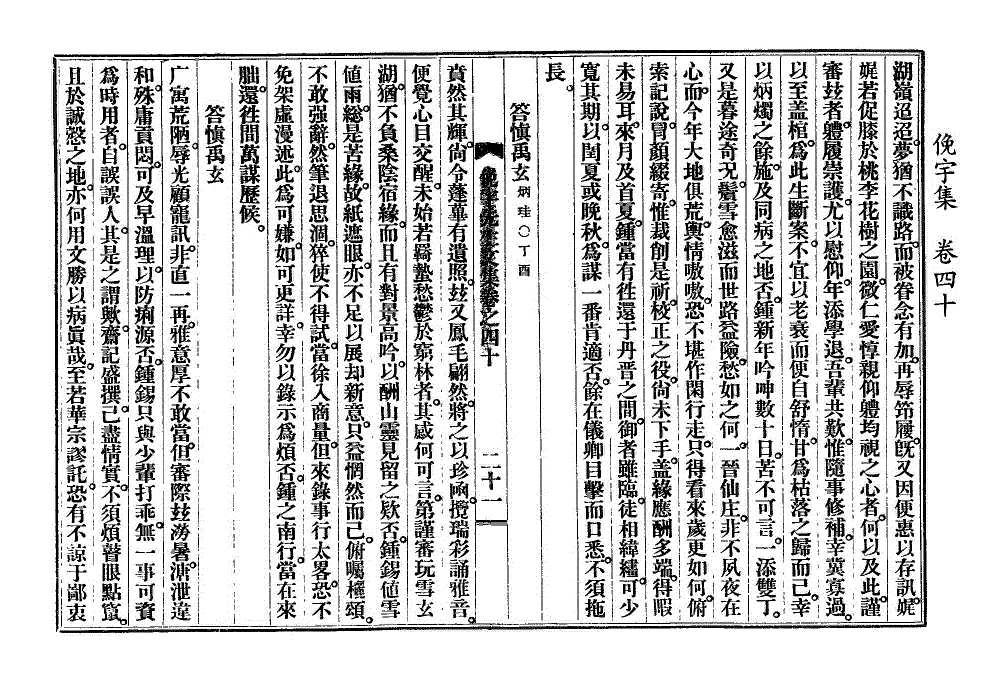 俛宇集 卷四十
湖嶺迢迢。夢猶不識路。而被眷念有加。再辱笻屨。旣又因便惠以存訊。娓
娓若促膝於桃李花樹之園。微仁愛惇親仰軆均視之心者。何以及此。謹
審玆者。軆履崇護。尤以慰仰。年添學退。吾輩共歎。惟隨事修補。幸冀寡過。
以至盖棺。爲此生斷案。不宜以老衰而便自舒惰。甘爲枯落之歸而已。幸
以炳燭之餘。施及同病之地否。鍾新年吟呻數十日。苦不可言。一添雙丁。
又是暮途奇况。鬢雪愈滋而世路益險。愁如之何。一晉仙庄。非不夙夜在
心。而今年大地俱荒。輿情嗷嗷。恐不堪作閑行走。只得看來歲更如何。俯
索記說。冒顔綴寄。惟裁創是祈。校正之役。尙未下手。盖緣應酬多端。得暇
未易耳。來月及首夏。鍾當有徃還于丹晋之間。御者雖臨。徒相緯繣。可少
寬其期。以閏夏或晩秋。爲謀一番肯適否。餘在儀卿目擊而口悉。不須拖
長。
答愼禹玄 炳珪○丁酉
賁然其輝。尙令蓬蓽有遺照。玆又鳳毛翩然。將之以珍凾。攬瑞彩誦雅音。
便覺心目交醒。未始若羇蟄愁鬱於窮林者。其感何可言。第謹審玩雪玄
湖。猶不負桑陰宿緣。而且有對景高吟。以酬山靈見留之欵否。鍾錫値雪
値雨。緫是苦緣。故紙遮眼。亦不足以展却新意。只益惘然而已。俯囑欞頌。
不敢强辭。然筆退思涸。猝使不得。試當徐入商量。但來錄事行太畧。恐不
免架虛漫述。此爲可嫌。如可更詳。幸勿以錄示爲煩否。鍾之南行。當在來
朏。還徃間萬謀歷候。
答愼禹玄
广寓荒陋。辱光顧寵訊。非直一再。雅意厚不敢當。但審際玆澇暑。湖泄違
和。殊庸貢悶。可及早溫理。以防痢源否。鍾錫只與少輩打乖。無一事可資
爲時用者。自誤誤人。其是之謂歟。齋記盛撰。己盡情實。不須煩瞽眼點竄。
且於誠慤之地。亦何用文勝以病眞哉。至若華宗謬託。恐有不諒于鄙衷
俛宇先生文集卷之四十
二十一